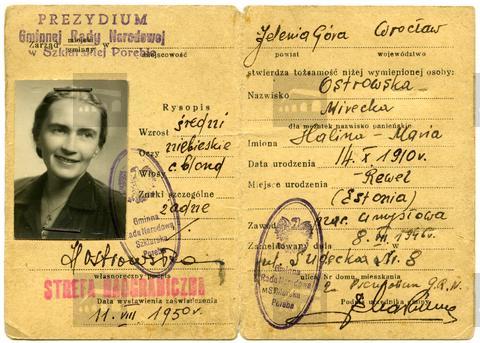 PREZYDIUM
Gminnej Rady Narodowej
w Szklarskiej Porębie
Zarząd miejski w
gminny
miejscowość
Rysopis
Wzrost średni
Oczy niebieskie
Włosy c. blond
Znaki szczególne
żadne
Gminna
Rada Narodowa
Szklarska
Poręba
H Ostrowska
własnoręczny podpis
STREFA NADGRANICZNA
Data wystawienia zaświadczenia
11. VIII 1950 r.
Jelenia Góra Wrocław
powiat województwo
stwierdza tożsamość niżej wymienionej osoby:
Nazwisko Ostrowska-
Mirecka
dla mężatek nazwisko panieńskie
Imiona Halina-Maria
Data urodzenia 14. X 1910 r.
Miejsce urodzenia Rewel
(Estonia)
Zawód prac. umysłowa
Zameldowany dnia 8. III. 1946 r. w
ul. Sudecka Nr. 8
ulica Nr domu mieszkania
Gminna
Rada Narodowa
Szklarska
Poręba